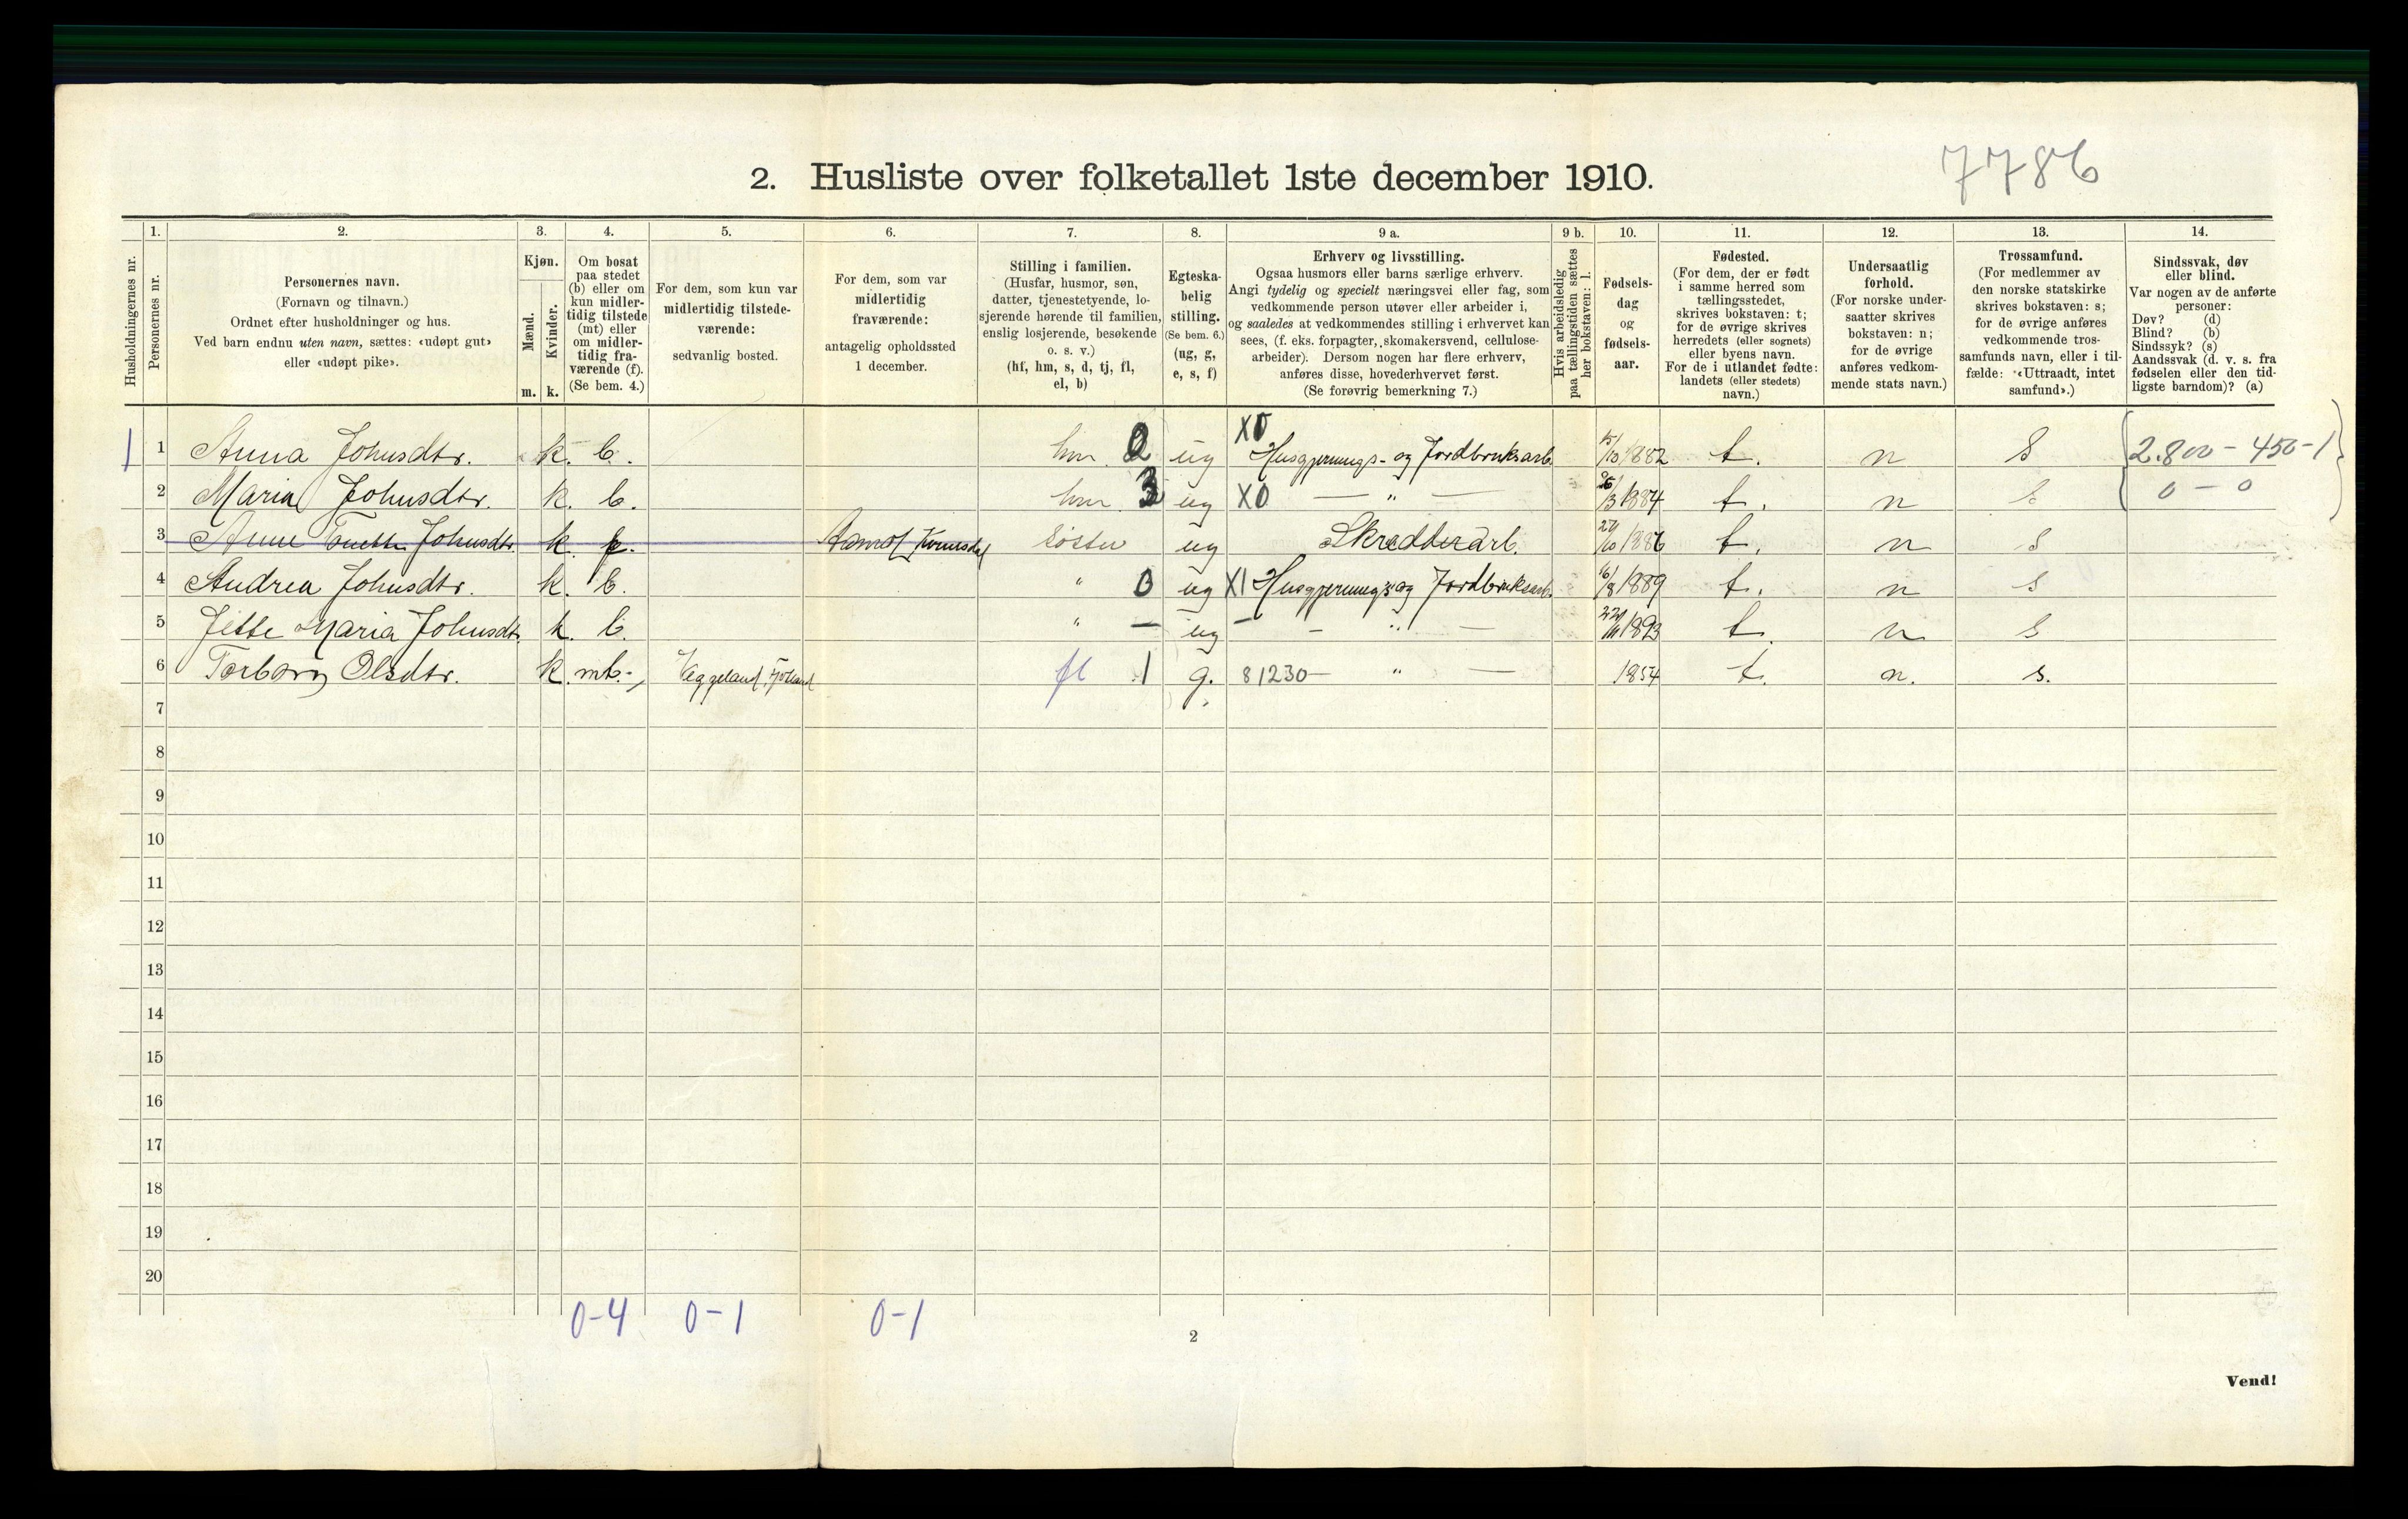 7786
2. Husliste over folketallet 1ste december 1910.
Husholdningernes nr.
1.
Personernes nr.
2.
Personernes navn.
(Fornavn og tilnavn.)
Ordnet efter husholdninger og hus.
Ved barn endnu uten navn, sættes: «udøpt gut»
eller «udøpt pike».
3.
Kjøn.
Mænd.
Kvinder.
m. k.
4.
Om bosat
paa stedet
(b) eller om
kun midler-
tidig tilstede
(mt) eller
om midler-
tidig fra-
værende (f).
(Se bem. 4.)
5.
For dem, som kun var
midlertidig tilstede-
værende:
sedvanlig bosted.
6.
For dem, som var
midlertidig
fraværende:
antagelig opholdssted
1 december.
7.
Stilling i familien.
(Husfar, husmor, søn,
datter, tjenestetyende, lo-
sjerende hørende til familien,
enslig losjerende, besøkende
o. s. v.)
(hf, hm, s, d, tj, fl,
el, b)
8.
Egteska-
belig
stilling.
(Se bem. 6.)
(ug, g,
e, s, f)
9 a.
Erhverv og livsstilling.
Ogsaa husmors eller barns særlige erhverv.
Angi tydelig og specielt næringsvei eller fag, som
vedkommende person utøver eller arbeider i,
og saaledes at vedkommendes stilling i erhvervet kan
sees, (f. eks. forpagter, skomakersvend, cellulose-
arbeider). Dersom nogen har flere erhverv,
anføres disse, hovederhvervet først.
(Se forøvrig bemerkning 7.)
9 b.
Hvis arbeidsledig
paa tællingstiden sættes
her bokstaven: l.
10.
Fødsels-
dag
og
fødsels-
aar.
11.
Fødested.
(For dem, der er født
i samme herred som
tællingsstedet,
skrives bokstaven: t;
for de øvrige skrives
herredets (eller sognets)
eller byens navn.
For de i utlandet fødte:
landets (eller stedets)
navn.)
12.
Undersaatlig
forhold.
(For norske under-
saatter skrives
bokstaven: n;
for de øvrige
anføres vedkom-
mende stats navn.)
13.
Trossamfund.
(For medlemmer av
den norske statskirke
skrives bokstaven: s;
for de øvrige anføres
vedkommende tros-
samfunds navn, eller i til-
fælde: «Uttraadt, intet
samfund».)
14.
Sindssvak, døv
eller blind.
Var nogen av de anførte
personer:
Døv? (d)
Blind? (b)
Sindssyk? (s)
Aandssvak (d. v. s. fra
fødselen eller den tid-
ligste barndom)? (a)
1 1 Anna Johnsdtr. k. b. hm 0 ug X0 Husgjernings- og Jordbruksarb. 15/10 1882 t. n s 2.800 - 450 - 1
2 Maria Johnsdtr. k. b. hm 3 ug X0 — " — 26/3 1884 t. n s 0 - 0
3 Anne Tonette Johnsdtr. k. f. Kvinesdal Søster ug Skredderarb. 27/10 1886 t. n s
4 Andrea Johnsdtr. k. b. " 0 ug X1 Husgjernings og Jordbruksarb. 16/8 1889 t. n s
5 Jette Maria Johnsdtr. k. b. " — ug — — " — 22/11 1893 t. n s
6 Torborg Olsdtr. k. mt. Veggeland, Fjotland fl 1 g. 81230 — " — 1854 t. n. s.
7
8
9
10
11
12
13
14
15
16
17
18
19
20
0-4 0-1 0-1
2
Vend!